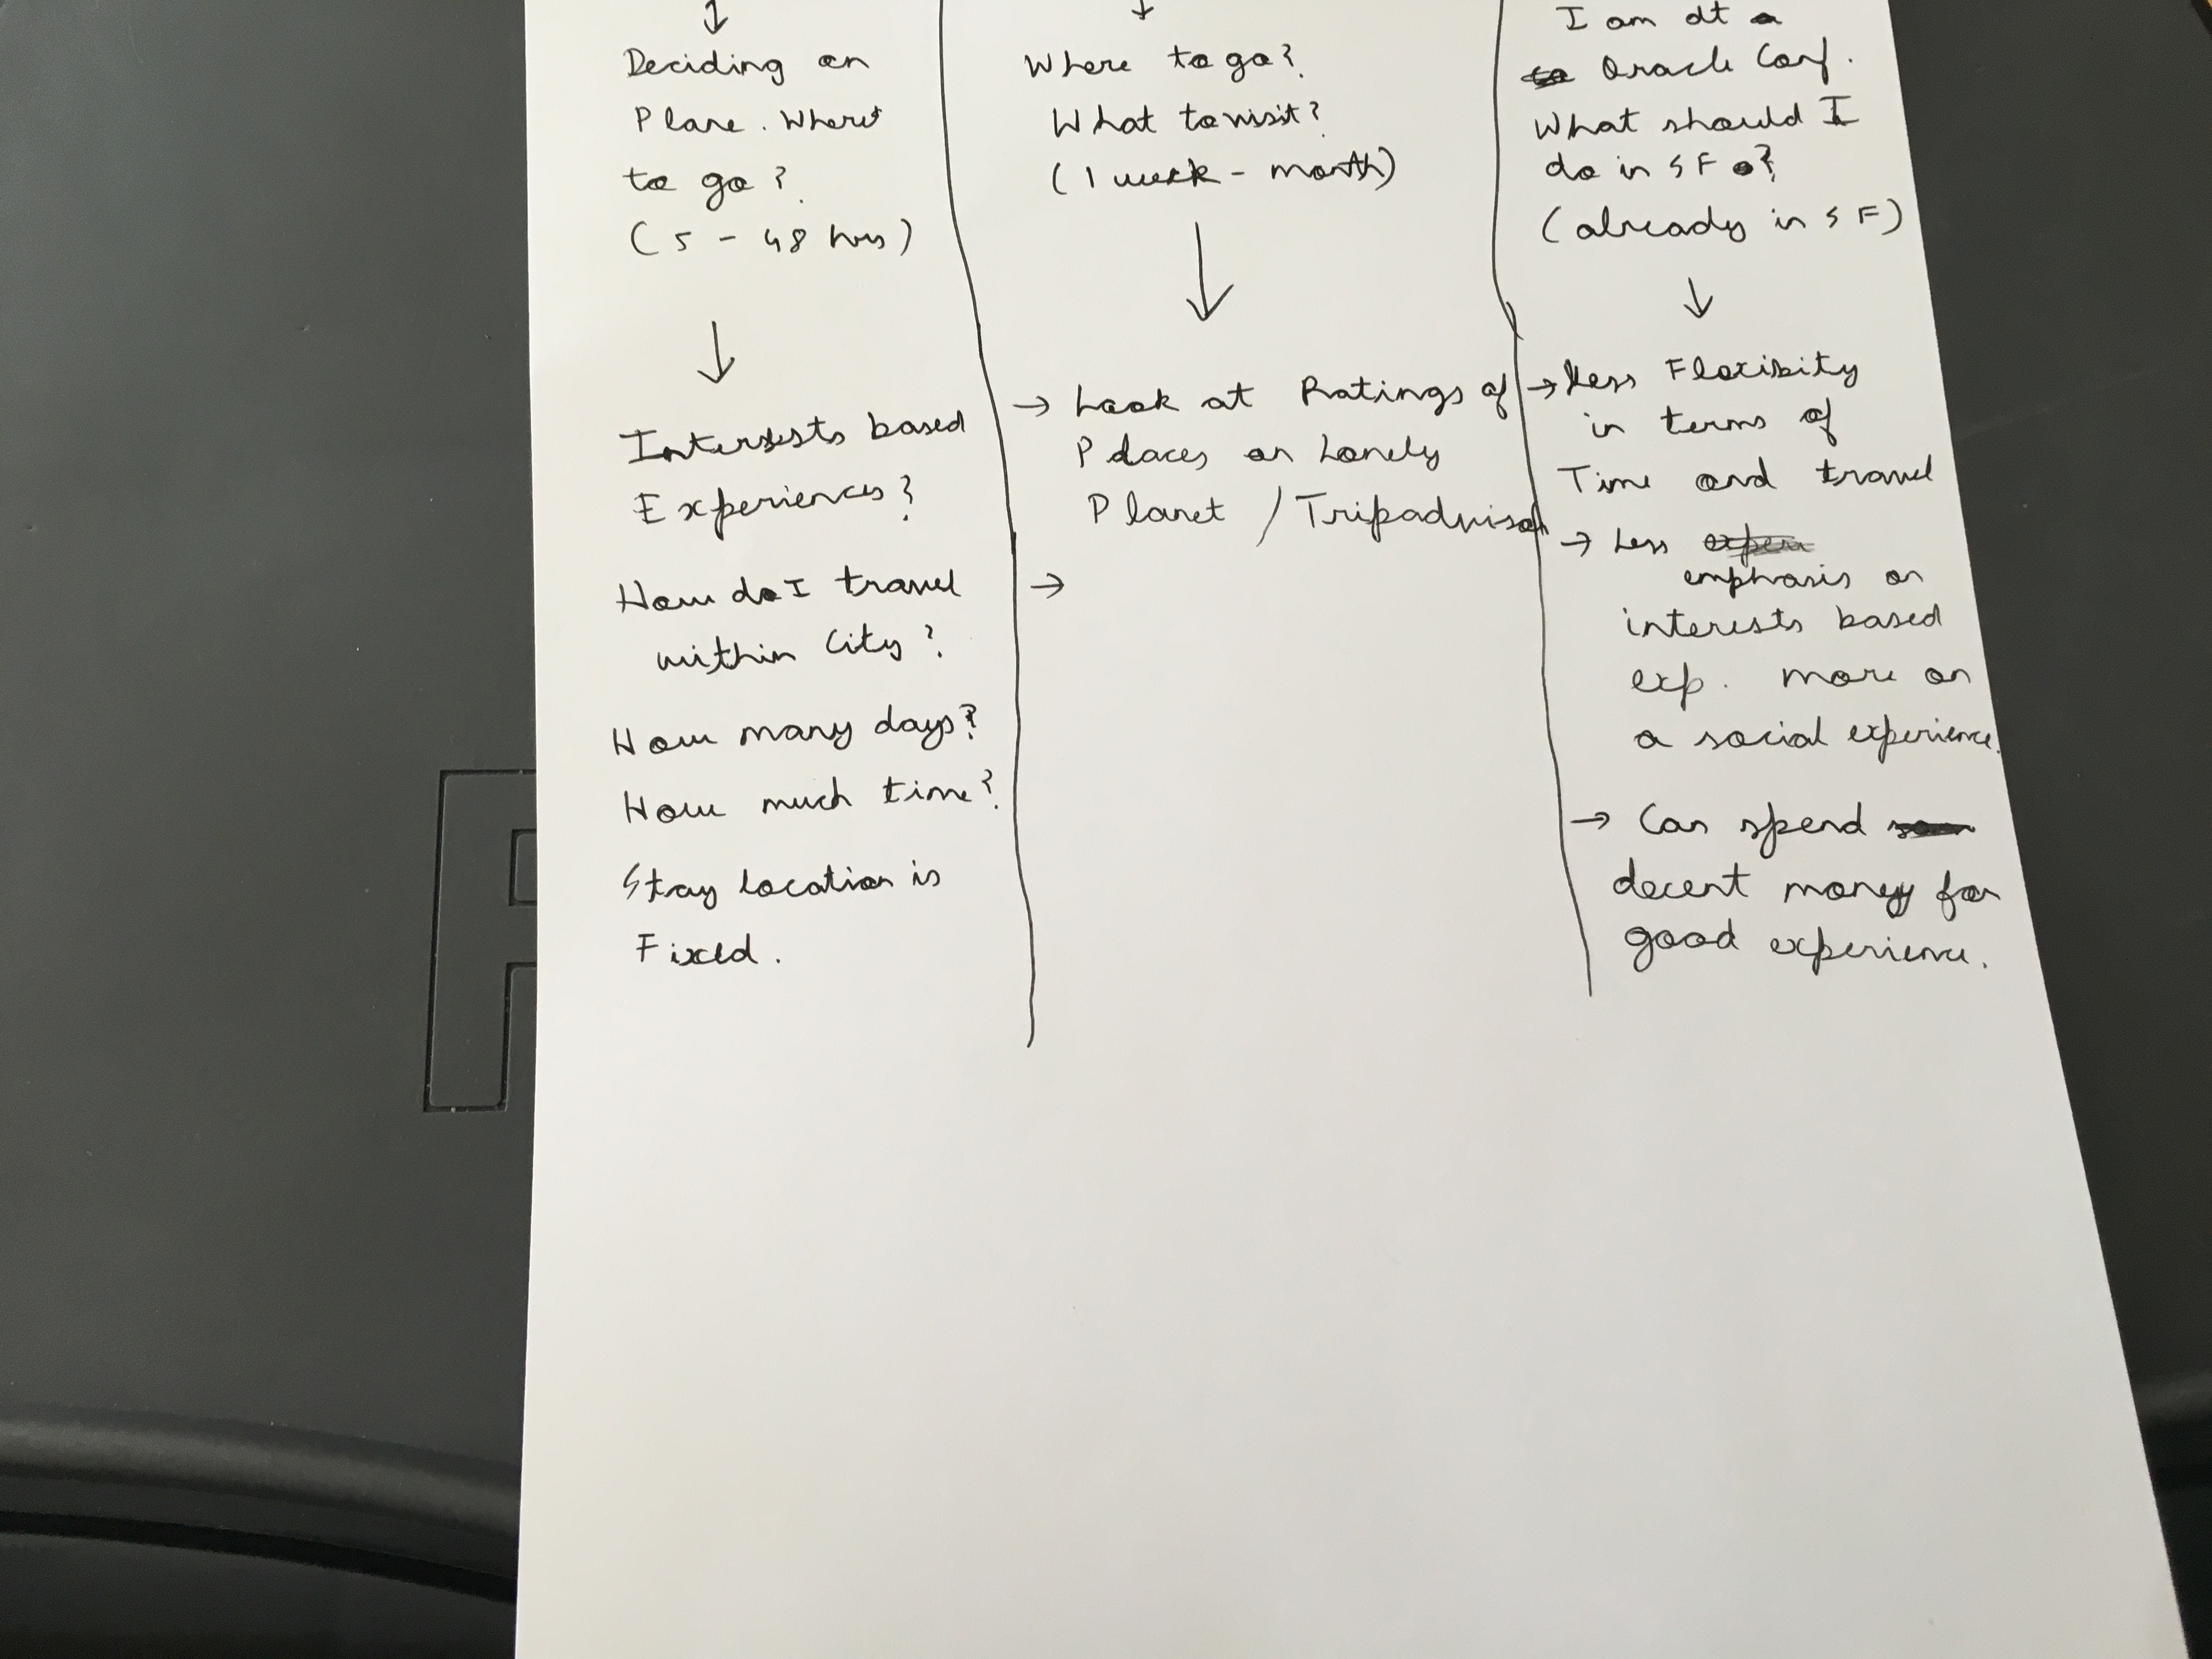 Deciding on
Plane. Where
to go?
(5 - 48 hrs)
Interests based
Experiences?
How do I travel
within City?
How many days?
How much time?
Stay location is
Fixed.
Where to go?
What to visit?
(1 week - month)
→ Look at Ratings of
Places on Lonely
Planet / Tripadvisor
→
I am at a
Oracle Conf.
What should I
do in SF?
(already in SF)
→ Less Flexibity
in terms of
Time and travel
→ Less
emphasis on
interests based
exp. more on
a social experience.
→ Can spend
decent money for
good experience.